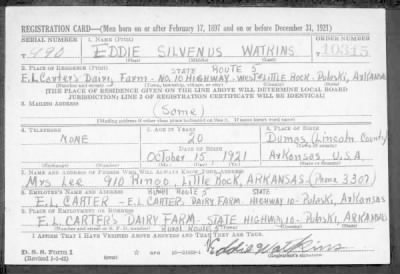 REGISTRATION CARD—(Men born on or after February 17, 1897 and on or before December 31, 1921)
SERIAL NUMBER 1. NAME (Print) ORDER NUMBER
490 EDDIE SILVENUS WATKINS 10315
(First) (Middle) (Last)
2. PLACE OF RESIDENCE (Print) STATE ROUTE 5
E.L. Carter's Dairy Farm - No. 10 HIGHWAY - West Little Rock - Pulaski, Arkansas
(Number and street) (Town, township, village, or city) (County) (State)
[THE PLACE OF RESIDENCE GIVEN ON THE LINE ABOVE WILL DETERMINE LOCAL BOARD
JURISDICTION; LINE 2 OF REGISTRATION CERTIFICATE WILL BE IDENTICAL]
3. MAILING ADDRESS
(Same)
[Mailing address if other than place indicated on line 2. If same insert word same]
4. TELEPHONE 5. AGE IN YEARS 6. PLACE OF BIRTH
NONE 20 Dumas, (Lincoln County)
DATE OF BIRTH (Town or county)
October 15, 1921 Arkansas, U.S.A.
(Exchange) (Number) (Mo.) (Day) (Yr.) (State or country)
7. NAME AND ADDRESS OF PERSON WHO WILL ALWAYS KNOW YOUR ADDRESS
Mrs Lee 910 Ringo, Little Rock, ARKANSAS - (Phone 3307)
8. EMPLOYER'S NAME AND ADDRESS Rural Route 5 STATE
E.L. CARTER - E.L. CARTER'S DAIRY FARM - HIGHWAY 10 - Pulaski, Arkansas
9. PLACE OF EMPLOYMENT OR BUSINESS
E.L. CARTER'S DAIRY FARM - STATE HIGHWAY 10 - Pulaski, ARKANSAS
(Number and street or R. F. D. number) Rural Route 5 (Town) (County) (State)
I AFFIRM THAT I HAVE VERIFIED ABOVE ANSWERS AND THAT THEY ARE TRUE.
D. S. S. Form 1
Eddie Watkins
(Registrant's signature)